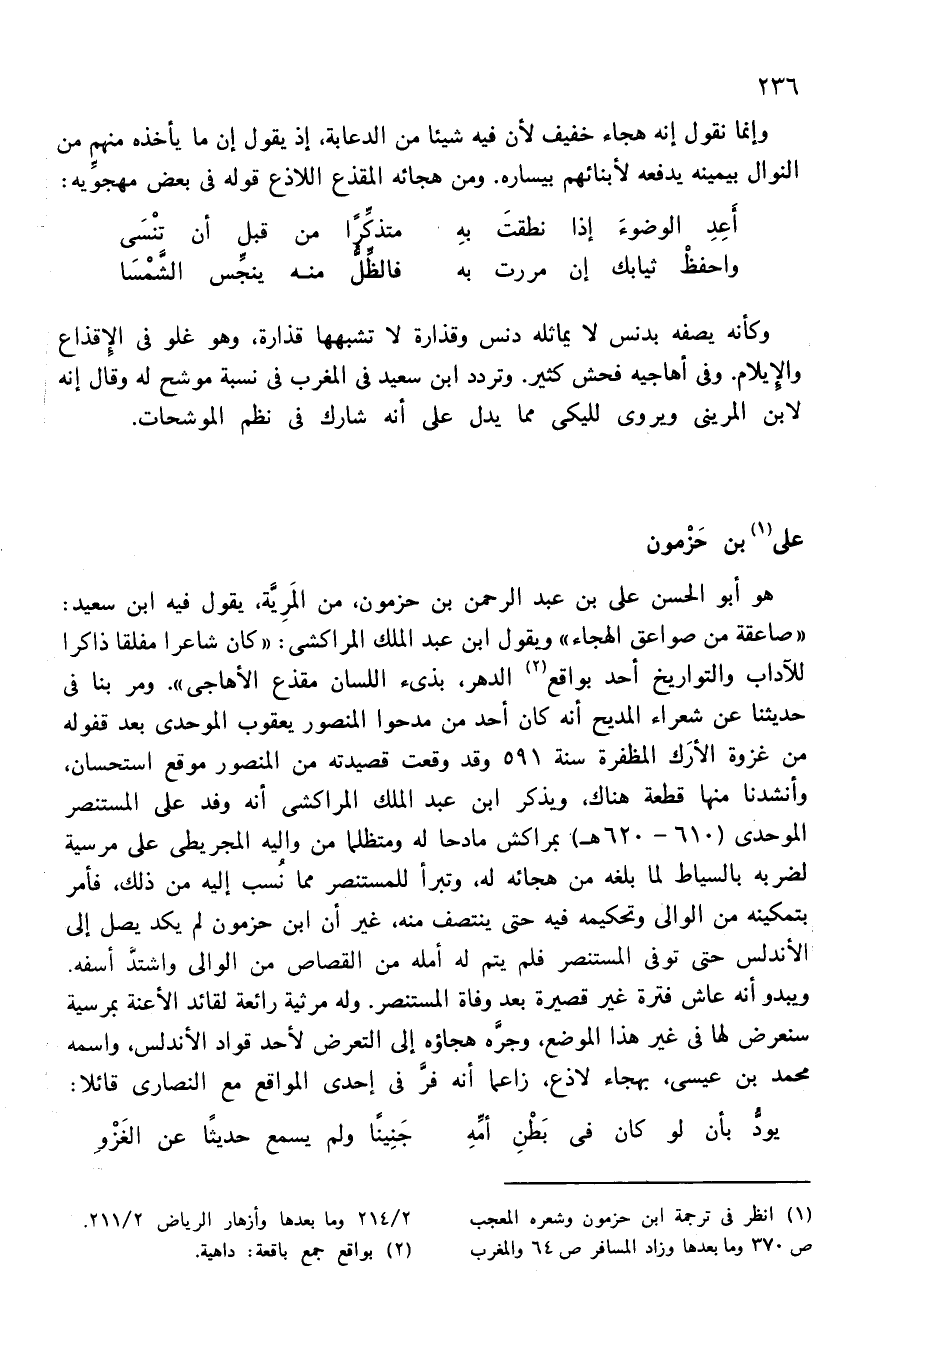 ٢٣٦
وإنما نقول إنه هجاء خفيف لأن فيه شيئا من الدعابة، إذ يقول إن ما يأخذه منهم من
النوال بيمينه يدفعه لأبنائهم بيساره. ومن هجائه المقذع اللاذع قوله فى بعض مهجوِّيه:
أَعِدِ الوضوءَ إذا نطقتَ بهِ متذكِّرًا من قبلِ أن تنْسَى
واحفظْ ثيابك إن مررت به فالظِّلُّ منه ينجِّس الشَّمْسَا
وكأنه يصفه بدنس لا يماثله دنس وقذارة لا تشبهها قذارة، وهو غلو فى الإقذاع
والإيلام. وفى أهاجيه فحش كثير. وتردد ابن سعيد فى المغرب فى نسبة موشح له وقال إنه
لابن المرينى ويروى لليكى مما يدل على أنه شارك فى نظم الموشحات.
على(١) بن حَزْمون
هو أبو الحسن على بن عبد الرحمن بن حزمون، من المَرِيَّة، يقول فيه ابن سعيد:
«صاعقة من صواعق الهجاء» ويقول ابن عبد الملك المراكشى: «كان شاعرا مفلقا ذاكرا
للآداب والتواريخ أحد بواقع(٢) الدهر، بذىء اللسان مقذع الأهاجى». ومر بنا فى
حديثنا عن شعراء المديح أنه كان أحد من مدحوا المنصور يعقوب الموحدى بعد قفوله
من غزوة الأرَك المظفرة سنة ٥٩١ وقد وقعت قصيدته من المنصور موقع استحسان،
وأنشدنا منها قطعة هناك، ويذكر ابن عبد الملك المراكشى أنه وفد على المستنصر
الموحدى (٦١٠ - ٦٢٠هـ) بمراكش مادحا له ومتظلما من واليه المجريطى على مرسية
لضربه بالسياط لما بلغه من هجائه له، وتبرأ للمستنصر مما نُسب إليه من ذلك، فأمر
بتمكينه من الوالى وتحكيمه فيه حتى ينتصف منه، غير أن ابن حزمون لم يكد يصل إلى
الأندلس حتى توفى المستنصر فلم يتم له أمله من القصاص من الوالى واشتدَّ أسفه.
ويبدو أنه عاش فترة غير قصيرة بعد وفاة المستنصر. وله مرثية رائعة لقائد الأعنة بمرسية
سنعرض لها فى غير هذا الموضع، وجرَّه هجاؤه إلى التعرض لأحد قواد الأندلس، واسمه
محمد بن عيسى، بهجاء لاذع، زاعما أنه فرَّ فى إحدى المواقع مع النصارى قائلا:
يودُّ بأن لو كان فى بَطْنِ أمِّهِ جَنِينًا ولم يسمع حديثًا عن الغَزْوِ
(١) انظر فى ترجمة ابن حزمون وشعره المعجب
ص ٣٧٠ وما بعدها وزاد المسافر ص ٦٤ والمغرب
٢١٤/٢ وما بعدها وأزهار الرياض ٢١١/٢.
(٢) بواقع جمع باقعة: داهية.